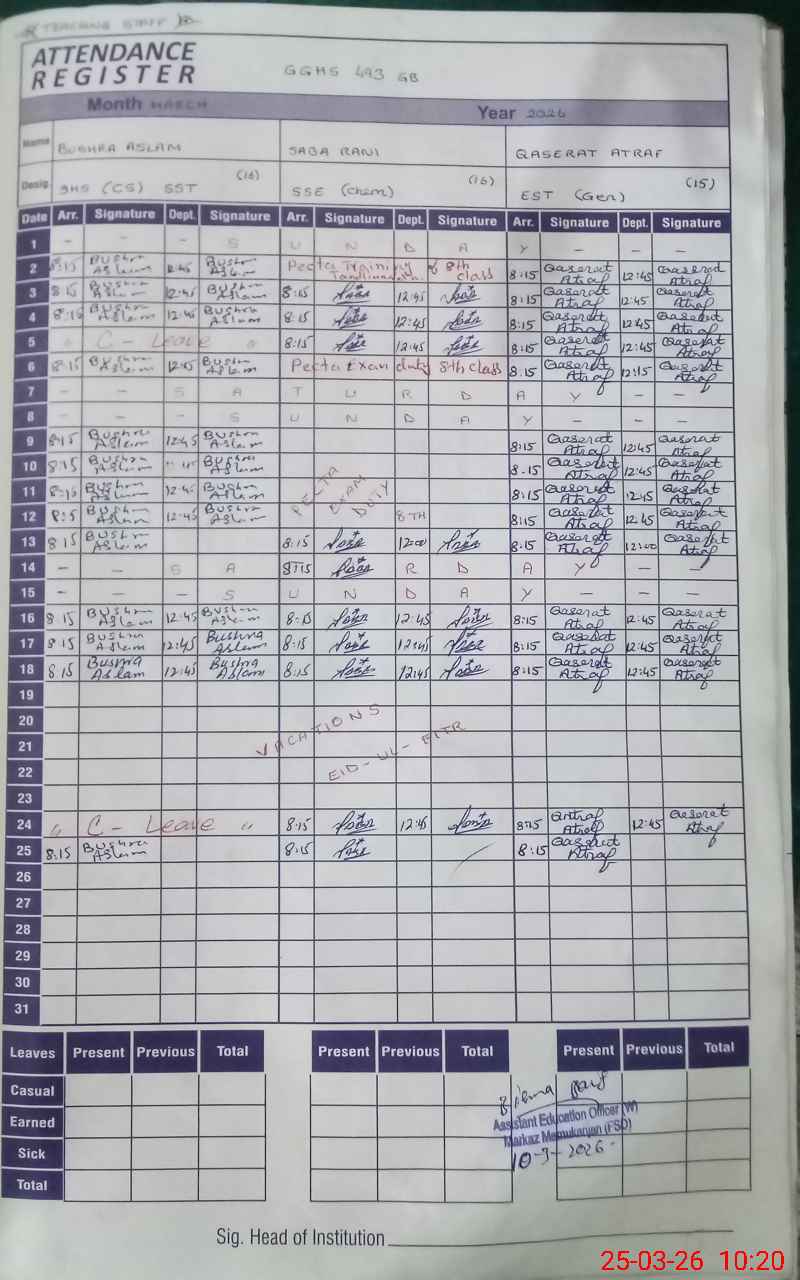 (TEACHING STAFF)
ATTENDANCE
REGISTER
GGHS 493 GB
Month MARCH
Year 2026
Name BUSHRA ASLAM SABA RANI QASERAT ATRAF
Desig. SHS (CS) SST (16) SSE (Chem) (16) EST (Gen) (15)
Date Arr. Signature Dept. Signature Arr. Signature Dept. Signature Arr. Signature Dept. Signature
1 - - - S U N D A Y - - -
2 8:15 Bushra Aslam 12:45 Bushra Aslam Pecta Training of 8th class 8:15 Qaserat Atraf 12:45 Qaserat Atraf
3 8:15 Bushra Aslam 12:45 Bushra Aslam 8:15 12:45 8:15 Qaserat Atraf 12:45 Qaserat Atraf
4 8:15 Bushra Aslam 12:45 Bushra Aslam 8:15 12:45 8:15 Qaserat Atraf 12:45 Qaserat Atraf
5 " C - Leave " 8:15 12:45 8:15 Qaserat Atraf 12:45 Qaserat Atraf
6 8:15 Bushra Aslam 12:45 Bushra Aslam Pecta Exam duty 8th class 8:15 Qaserat Atraf 12:15 Qaserat Atraf
7 - - S A T U R D A Y - -
8 - - - S U N D A Y - - -
9 8:15 Bushra Aslam 12:45 Bushra Aslam 8:15 Qaserat Atraf 12:45 Qaserat Atraf
10 8:15 Bushra Aslam Bushra Aslam 8:15 Qaserat Atraf 12:45 Qaserat Atraf
11 8:15 Bushra Aslam 12:45 Bushra Aslam PECTA EXAM DUTY 8:15 Qaserat Atraf 12:45 Qaserat Atraf
12 Bushra Aslam 12:45 Bushra Aslam 8TH 8:15 Qaserat Atraf 12:45 Qaserat Atraf
13 8:15 Bushra Aslam 8:15 12:00 8:15 Qaserat Atraf 12:00 Qaserat Atraf
14 - - S A 8:15 R D A Y - -
15 - - - S U N D A Y - - -
16 8:15 Bushra Aslam 12:45 Bushra Aslam 8:15 12:45 8:15 Qaserat Atraf 12:45 Qaserat Atraf
17 8:15 Bushra Aslam 12:45 Bushra Aslam 8:15 12:45 8:15 Qaserat Atraf 12:45 Qaserat Atraf
18 8:15 Bushra Aslam 12:45 Bushra Aslam 8:15 12:45 8:15 Qaserat Atraf 12:45 Qaserat Atraf
19
20
VACATIONS
21
EID-UL-FITR
22
23
24 " C - Leave " 8:15 12:45 8:15 Atraf 12:45 Qaserat Atraf
25 8:15 Bushra Aslam 8:15 8:15 Qaserat Atraf
26
27
28
29
30
31
Leaves Present Previous Total Present Previous Total Present Previous Total
Casual
Earned
Sick
Total
Assistant Education Officer (W)
Markaz Mamukanjan (FSD)
10-3-2026
Sig. Head of Institution
25-03-26 10:20